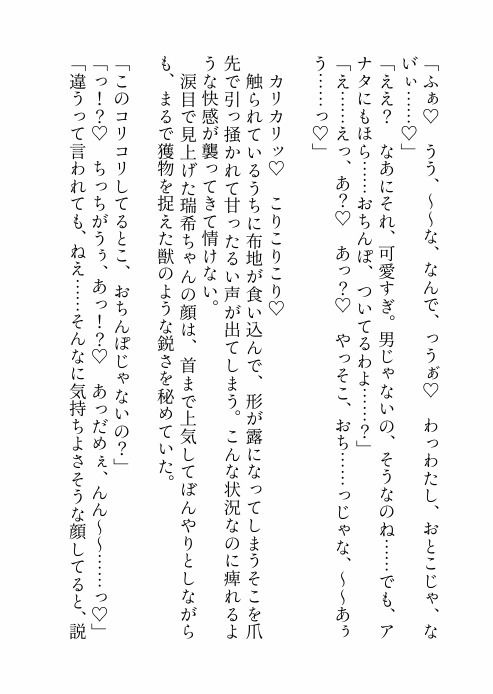 「ふぁ♡　うう、～～な、なんで、っうぁ゙♡　わっわたし、おとこじゃ、な
いぃ……♡」
「ええ？　なあにそれ、可愛すぎ。男じゃないの、そうなのね……でも、ア
ナタにもほら……おちんぽ、ついてるわよ……？」
「え……えっ、あ？♡　あっ？♡　やっそこ、おち……っじゃな、～～あぅ
う……っ♡」
カリカリッ♡　こりこりこり♡
触られているうちに布地が食い込んで、形が露になってしまうそこを爪
先で引っ掻かれて甘ったるい声が出てしまう。こんな状況なのに痺れるよ
うな快感が襲ってきて情けない。
涙目で見上げた瑞希ちゃんの顔は、首まで上気してぼんやりとしながら
も、まるで獲物を捉えた獣のような鋭さを秘めていた。
「このコリコリしてるとこ、おちんぽじゃないの？」
「っ！？♡　ちっちがうぅ、あっ！？♡　あっだめぇ、んん～～……っ♡」
「違うって言われても、ねえ……そんなに気持ちよさそうな顔してると、説